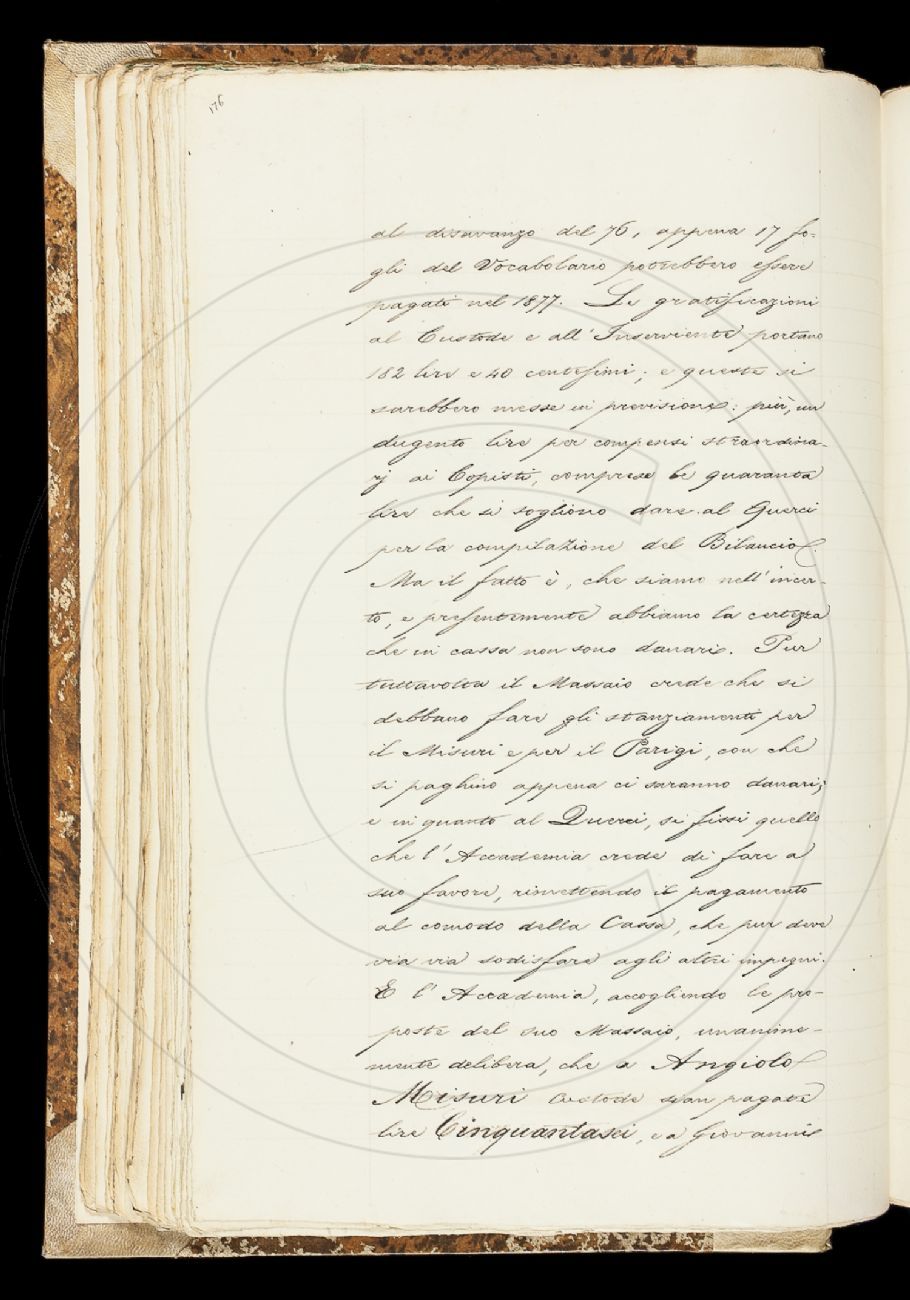 176
al disavanzo del 76, appena 17 fo-
gli del Vocabolario potrebbero essere
pagati nel 1877. Le gratificazioni
al Custode e all' Inserviente portano
182 lire e 40 centesimi; e queste si
sarebbero messe in previsione: più, un
dugento lire per compensi straordina-
rj ai Copisti, comprese le quaranta
lire che si sogliono dare al Querci
per la compilazione del Bilancio.
Ma il fatto è, che siamo nell' incer-
to, e presentemente abbiamo la certezza
che in cassa non sono danari. Pur
tuttavolta il Massaio crede che si
debbano fare gli stanziamenti per
il Misuri e per il Parigi, con che
si paghino appena ci saranno danari;
e in quanto al Querci, si fissi quello
che l' Accademia crede di fare a
suo favore, rimettendo il pagamento
al comodo della Cassa, che pur deve
via via sodisfare agli altri impegni.
E l' Accademia, accogliendo le pro-
poste del suo Massaio, unanime-
mente delibera, che a Angiolo
Misuri Custode sian pagate
lire Cinquantasei, e a Giovanni